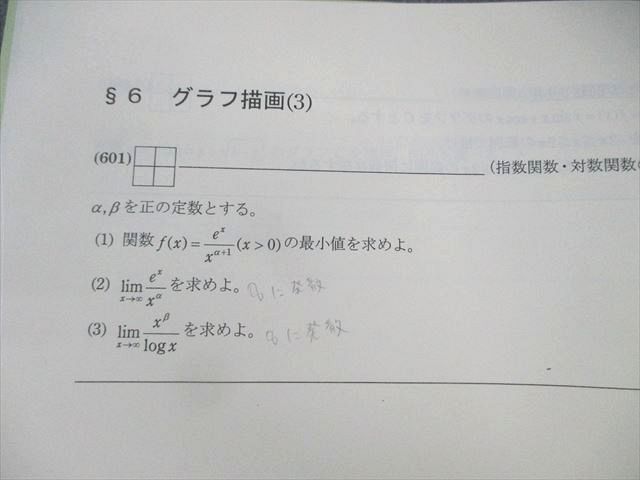 §6 グラフ描画(3)
(601)
(指数関数・対数関数の
α, βを正の定数とする。
(1) 関数 f(x) = e^x / x^{α+1} (x > 0) の最小値を求めよ。
(2) lim_{x→∞} e^x / x^α を求めよ。 に発散
(3) lim_{x→∞} x^β / log x を求めよ。 に発散